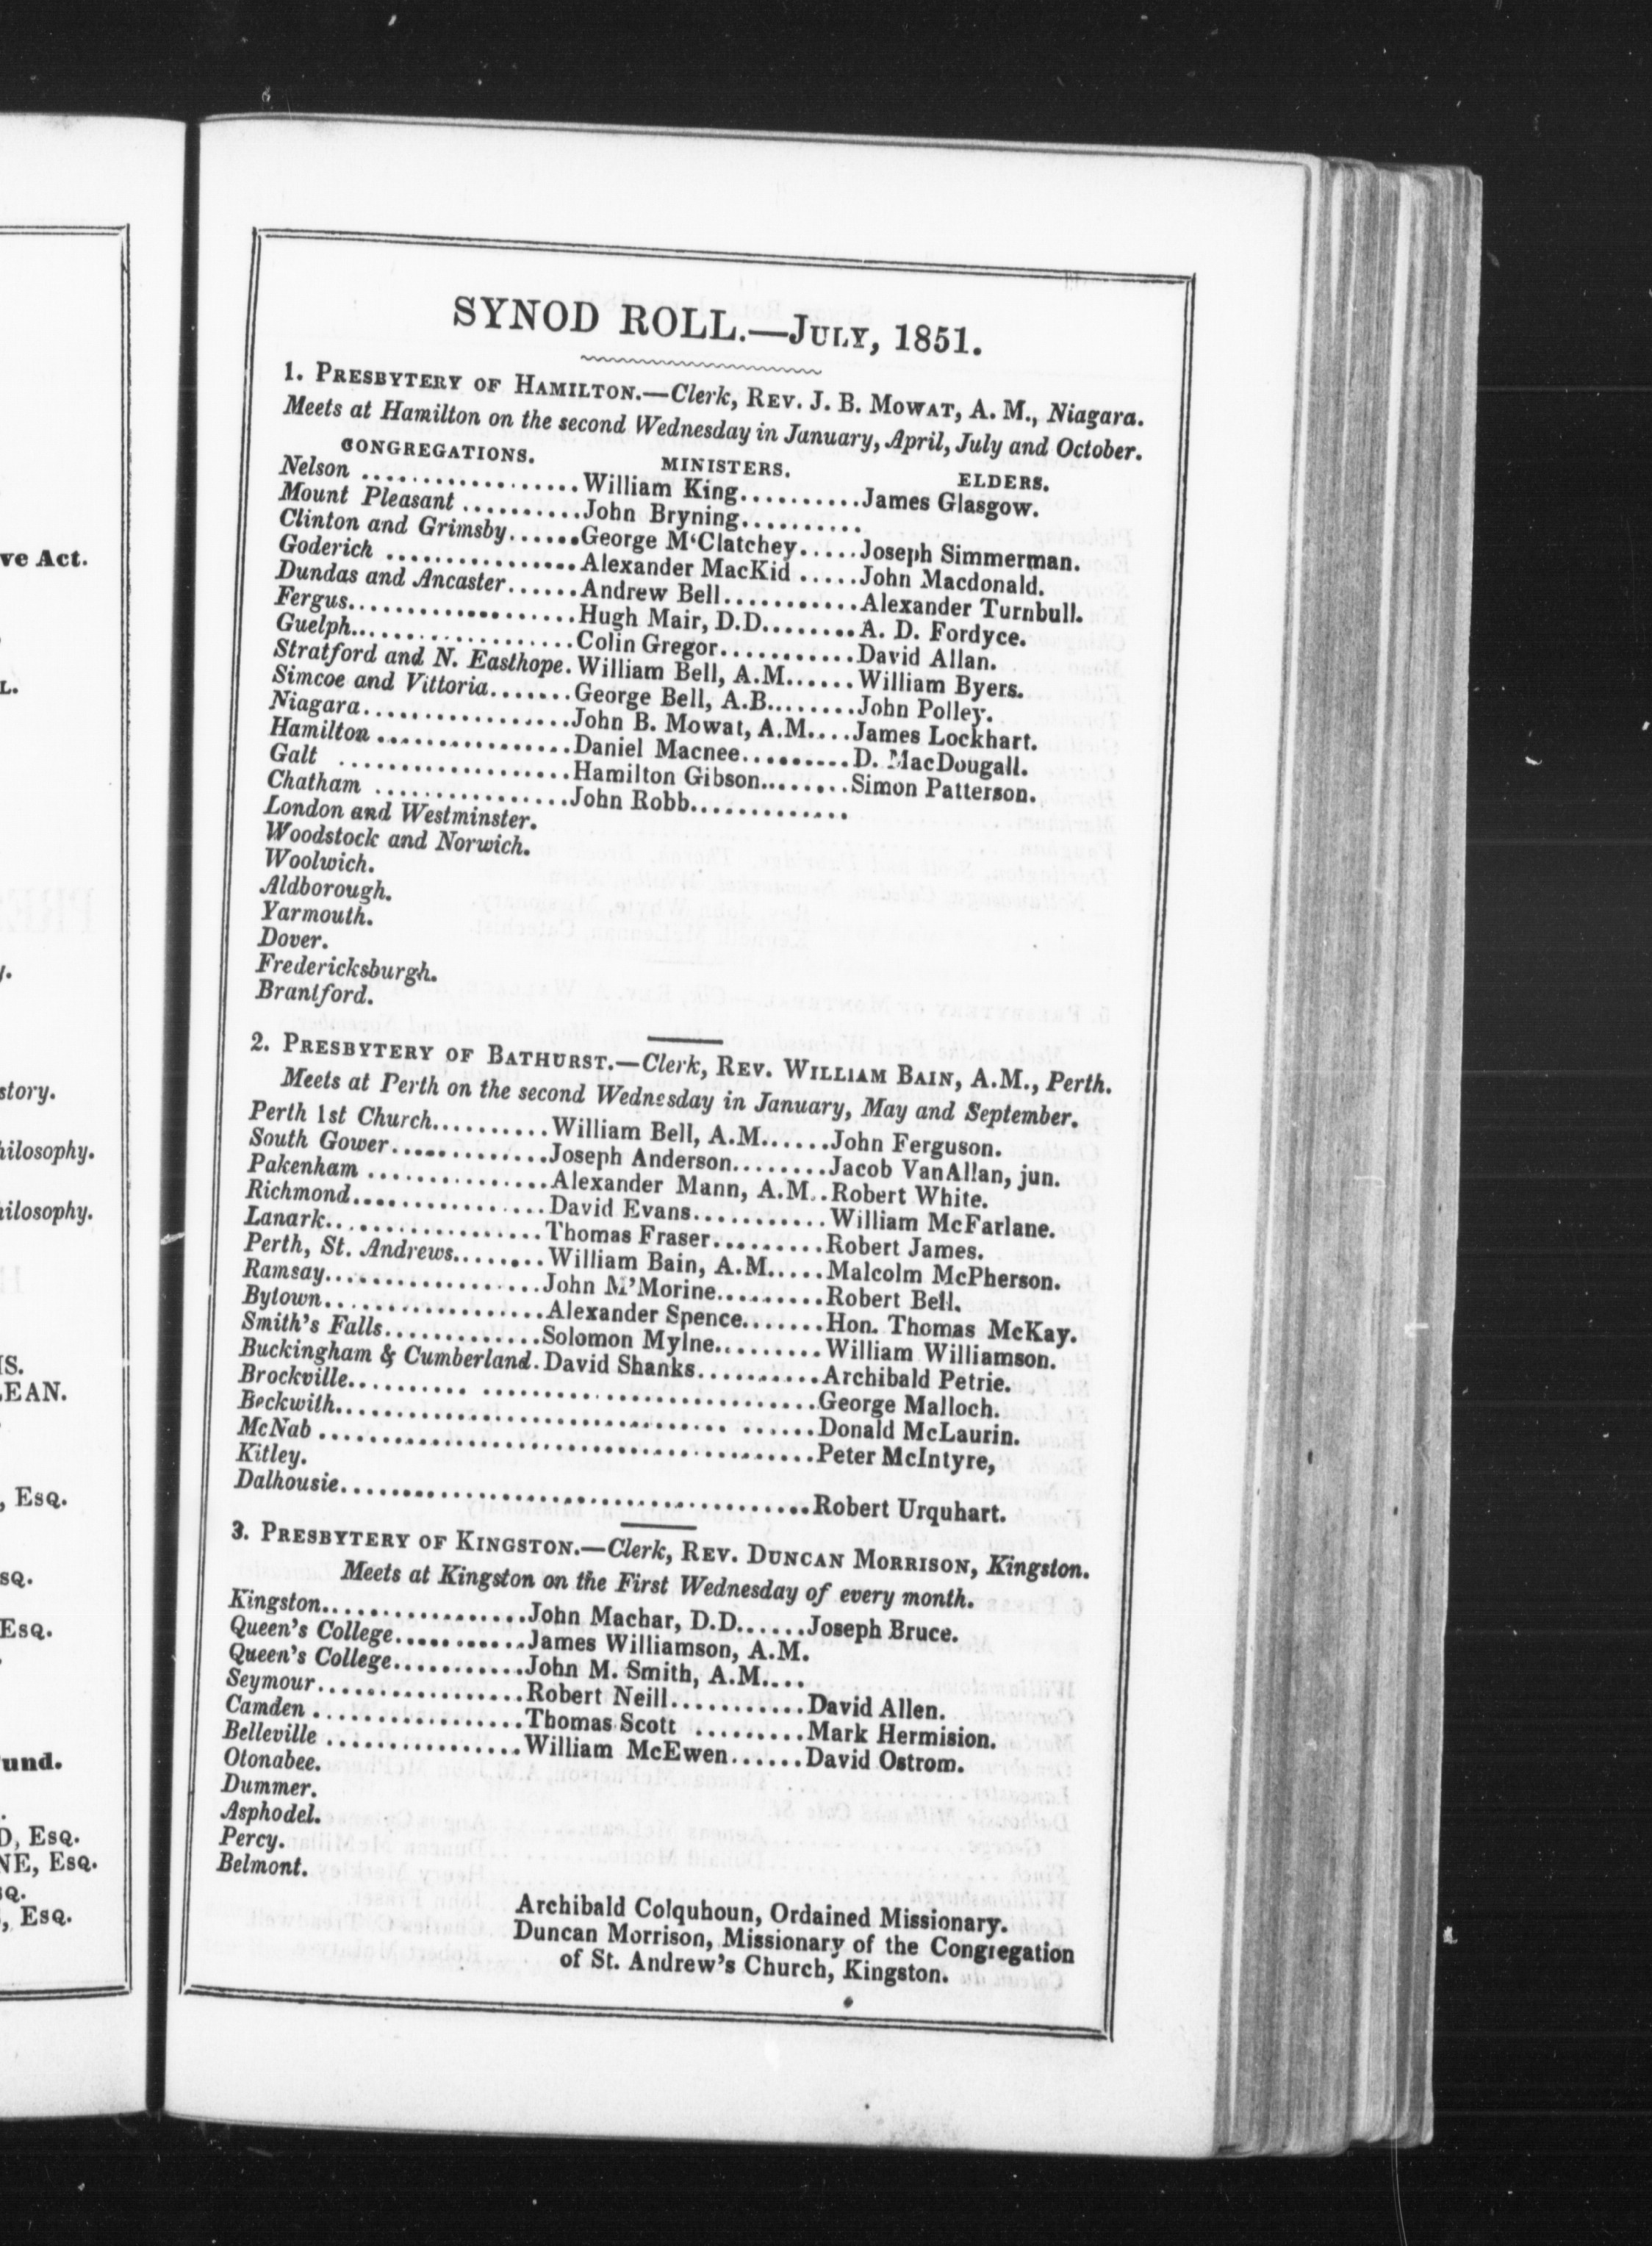 ve Act.
L.
y.
story.
hilosophy.
hilosophy.
IS.
LEAN.
, Esq.
sq.
Esq.
und.
D, Esq.
NE, Esq.
sq.
, Esq.
SYNOD ROLL.—July, 1851.
1. Presbytery of Hamilton.—Clerk, Rev. J. B. Mowat, A. M., Niagara.
Meets at Hamilton on the second Wednesday in January, April, July and October.
CONGREGATIONS. MINISTERS. ELDERS.
Nelson ..................William King..........James Glasgow.
Mount Pleasant ..........John Bryning..........
Clinton and Grimsby......George M‘Clatchey.....Joseph Simmerman.
Goderich ................Alexander MacKid .....John Macdonald.
Dundas and Ancaster......Andrew Bell...........Alexander Turnbull.
Fergus...................Hugh Mair, D.D........A. D. Fordyce.
Guelph...................Colin Gregor...........David Allan.
Stratford and N. Easthope.William Bell, A.M......William Byers.
Simcoe and Vittoria.......George Bell, A.B........John Polley.
Niagara.................John B. Mowat, A.M....James Lockhart.
Hamilton ................Daniel Macnee.........D. MacDougall.
Galt ...................Hamilton Gibson........Simon Patterson.
Chatham ................John Robb.............
London and Westminster.
Woodstock and Norwich.
Woolwich.
Aldborough.
Yarmouth.
Dover.
Fredericksburgh.
Brantford.
2. Presbytery of Bathurst.—Clerk, Rev. William Bain, A.M., Perth.
Meets at Perth on the second Wednesday in January, May and September.
Perth 1st Church..........William Bell, A.M......John Ferguson.
South Gower.............Joseph Anderson........Jacob VanAllan, jun.
Pakenham ...............Alexander Mann, A.M..Robert White.
Richmond................David Evans...........William McFarlane.
Lanark..................Thomas Fraser.........Robert James.
Perth, St. Andrews........William Bain, A.M.....Malcolm McPherson.
Ramsay..................John M’Morine.........Robert Bell.
Bytown..................Alexander Spence.......Hon. Thomas McKay.
Smith's Falls.............Solomon Mylne.........William Williamson.
Buckingham & Cumberland.David Shanks..........Archibald Petrie.
Brockville.......... ............................George Malloch.
Beckwith.................................. ......Donald McLaurin.
McNab .........................................Peter McIntyre,
Kitley.
Dalhousie.......................................Robert Urquhart.
3. Presbytery of Kingston.—Clerk, Rev. Duncan Morrison, Kingston.
Meets at Kingston on the First Wednesday of every month.
Kingston.................John Machar, D.D......Joseph Bruce.
Queen's College...........James Williamson, A.M.
Queen's College...........John M. Smith, A.M....
Seymour.................Robert Neill...........David Allen.
Camden .................Thomas Scott .........Mark Hermision.
Belleville ................William McEwen......David Ostrom.
Otonabee.
Dummer.
Asphodel.
Percy.
Belmont.
Archibald Colquhoun, Ordained Missionary.
Duncan Morrison, Missionary of the Congregation
of St. Andrew's Church, Kingston.